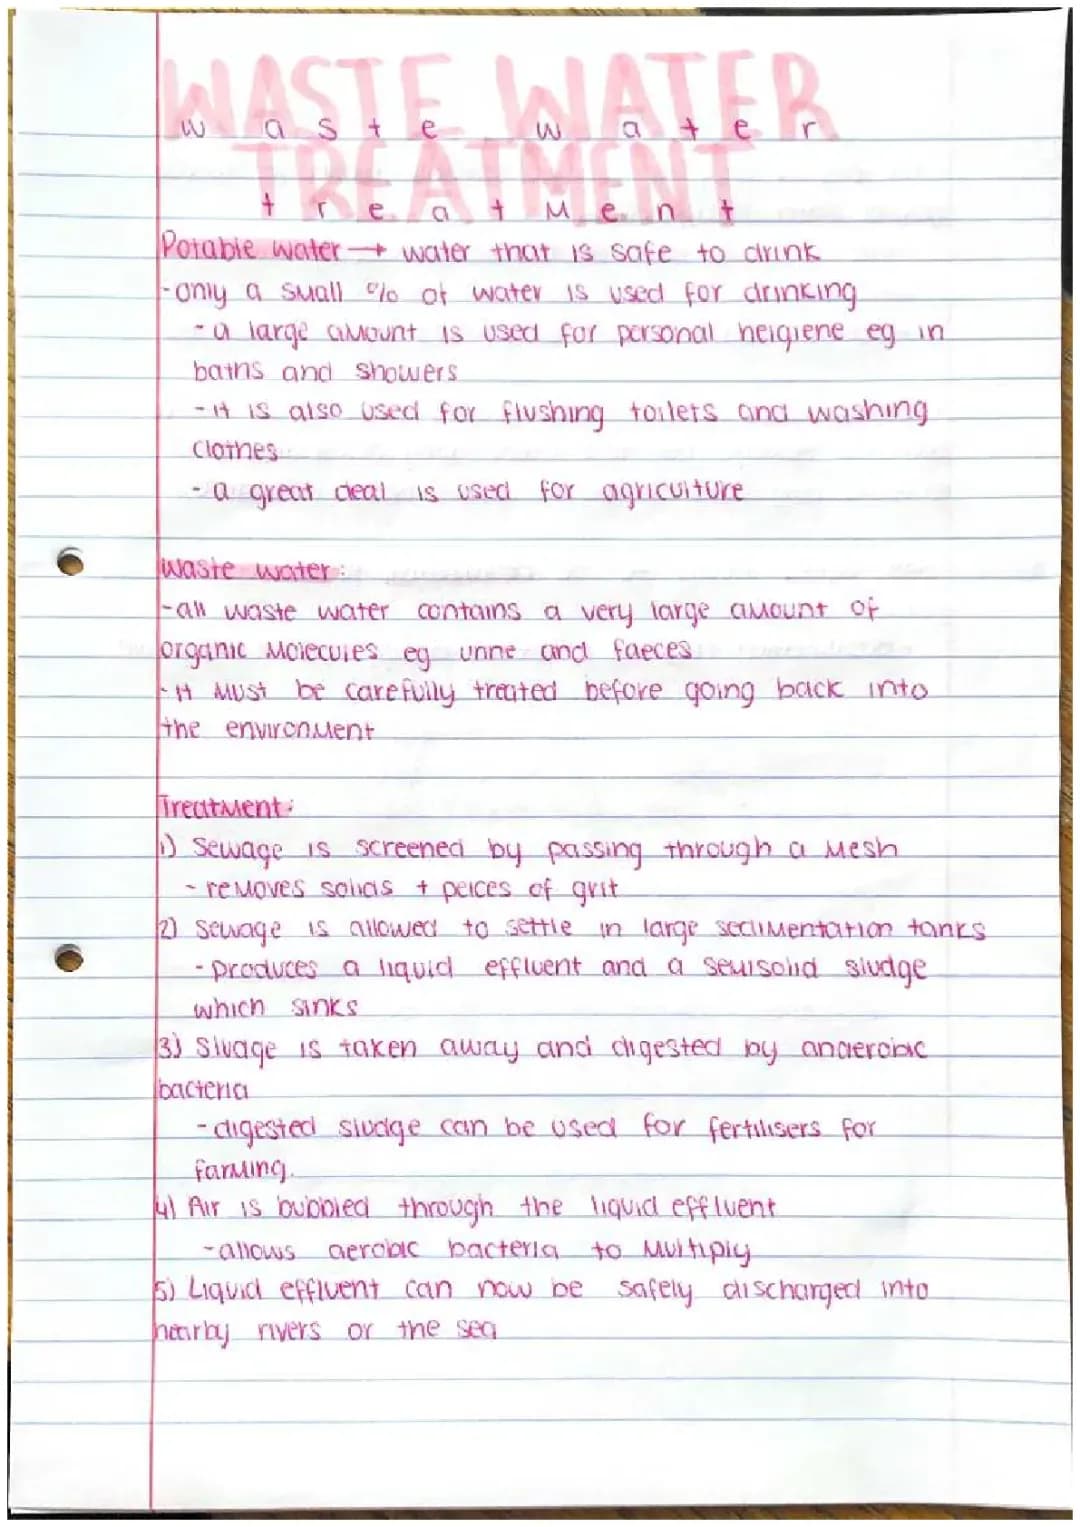 WASTE WATER
waste water
TREATMENT
treatment
Potable water → water that is safe to drink
-only a small % of water is used for drinking
-a large amount is used for personal heigiene eg in
baths and showers
-it is also used for flushing toilets and washing
clothes
-a great deal is used for agriculture
Waste water:
-all waste water contains a very large amount of
organic molecules eg urine and faeces
-it must be carefully treated before going back into
the environment
Treatment:
1) Sewage is screened by passing through a mesh
-removes solids + peices of grit
2) Sewage is allowed to settle in large sedimentation tanks
-produces a liquid effluent and a semisolid sludge
which sinks
3) Sluage is taken away and digested by anaerobic
bacteria
-digested sludge can be used for fertilisers for
farming.
4) Air is bubbled through the liquid effluent
-allows aerobic bacteria to multiply
5) Liquid effluent can now be safely discharged into
nearby rivers or the sea